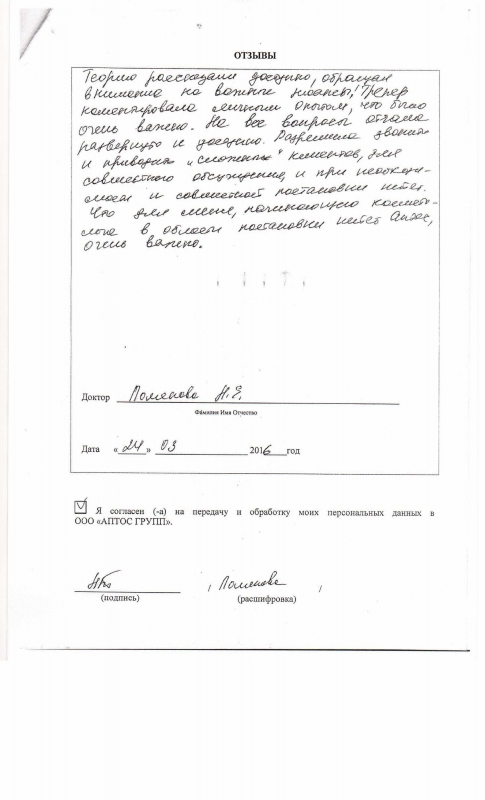 ОТЗЫВЫ
Теорию рассказали доступно, обращая
внимание на важные нюансы! Тренер
коментировала личным опытом, что было
очень важно. На все вопросы отвечала
развернуто и доступно. Разрешила звонить
и приводить "сложных" клиентов, для
совместного обсуждения, и при необходи-
мости и совместной постановки нитей.
Что для меня, начинающего космето-
лога в области постановки нитей Аптос,
очень важно.
Доктор Поменова Н.Е.
Фамилия Имя Отчество
Дата «24» 03 2016 год
Я согласен (-а) на передачу и обработку моих персональных данных в
ООО «АПТОС ГРУПП».
/ Поменова /
(подпись) (расшифровка)